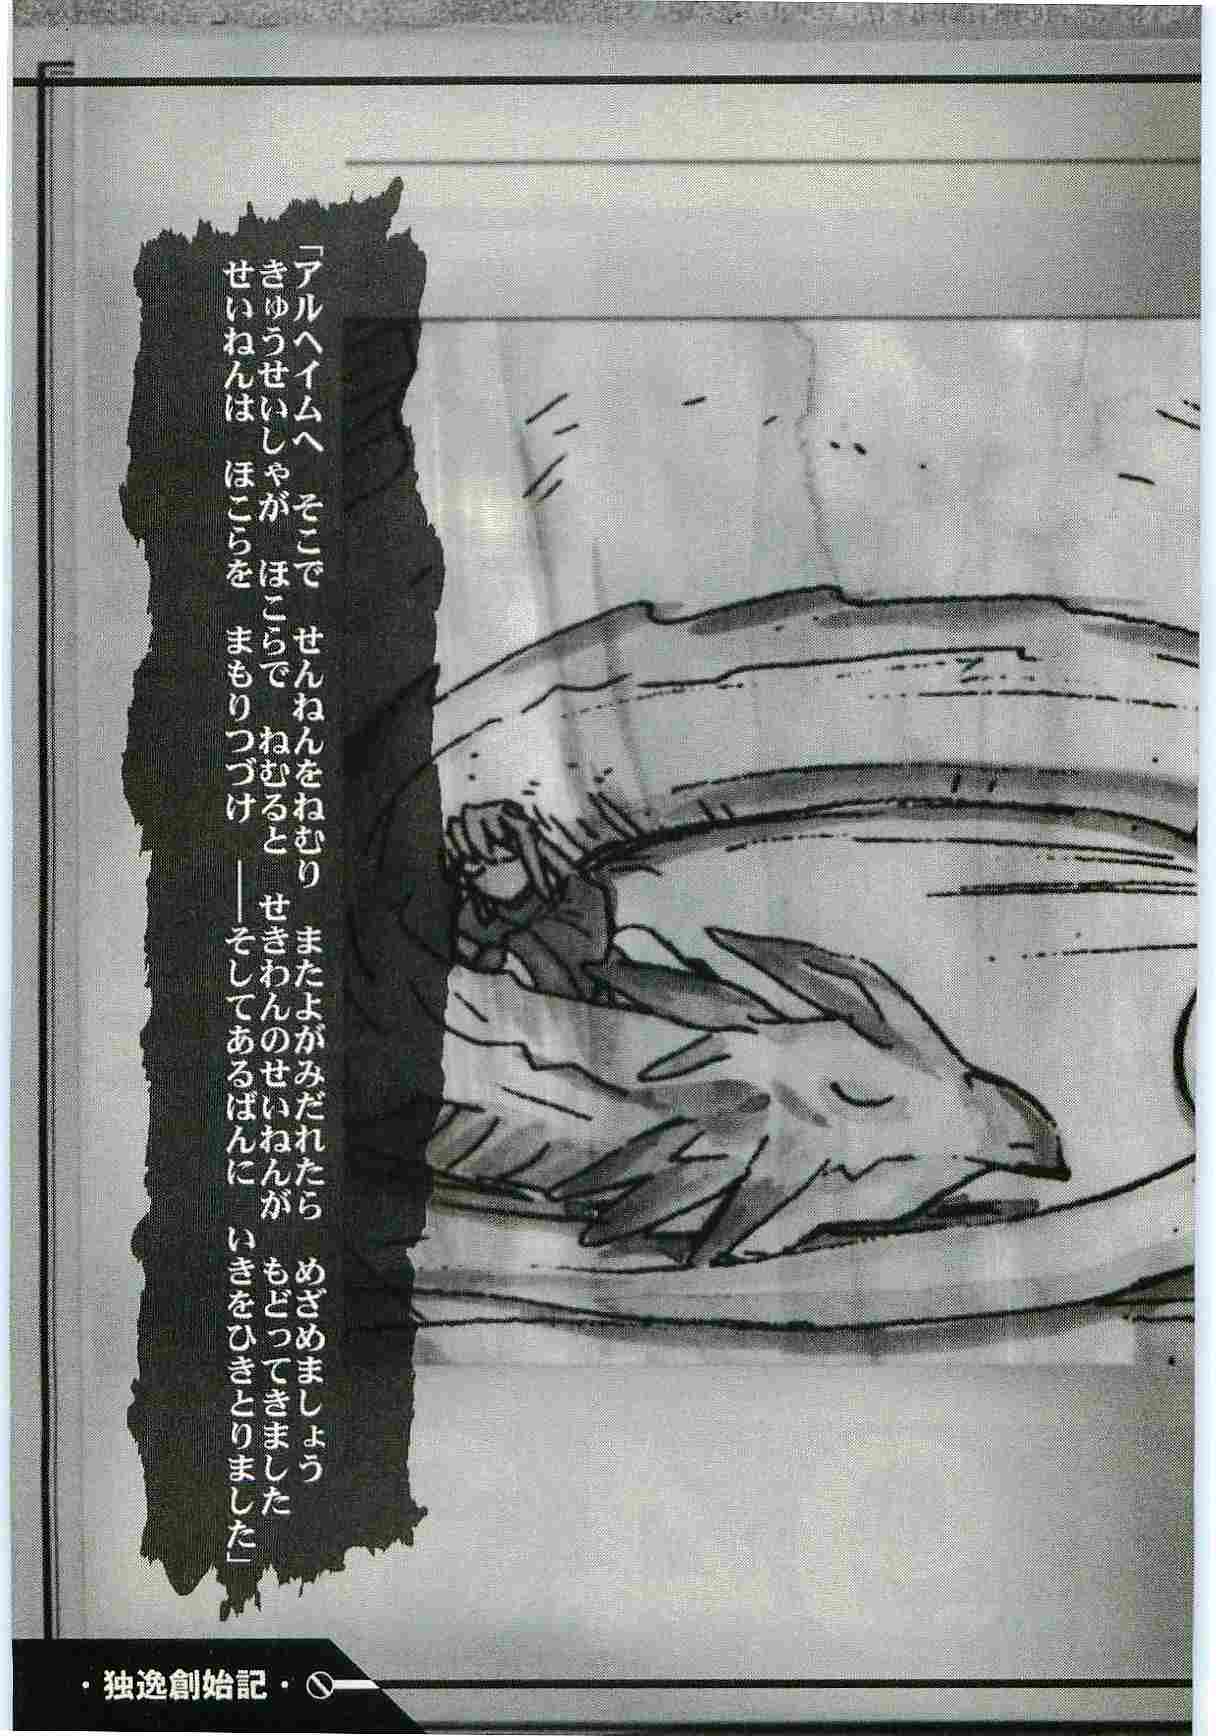 「アルヘイムへ　そこで　せんねんをねむり　またよがみだれたら　めざめましょう
きゅうせいしゃが　ほこらで　ねむると　せきわんのせいねんが　もどってきました
せいねんは　ほこらを　まもりつづけ　――そしてあるばんに　いきをひきとりました」
・独逸創始記・